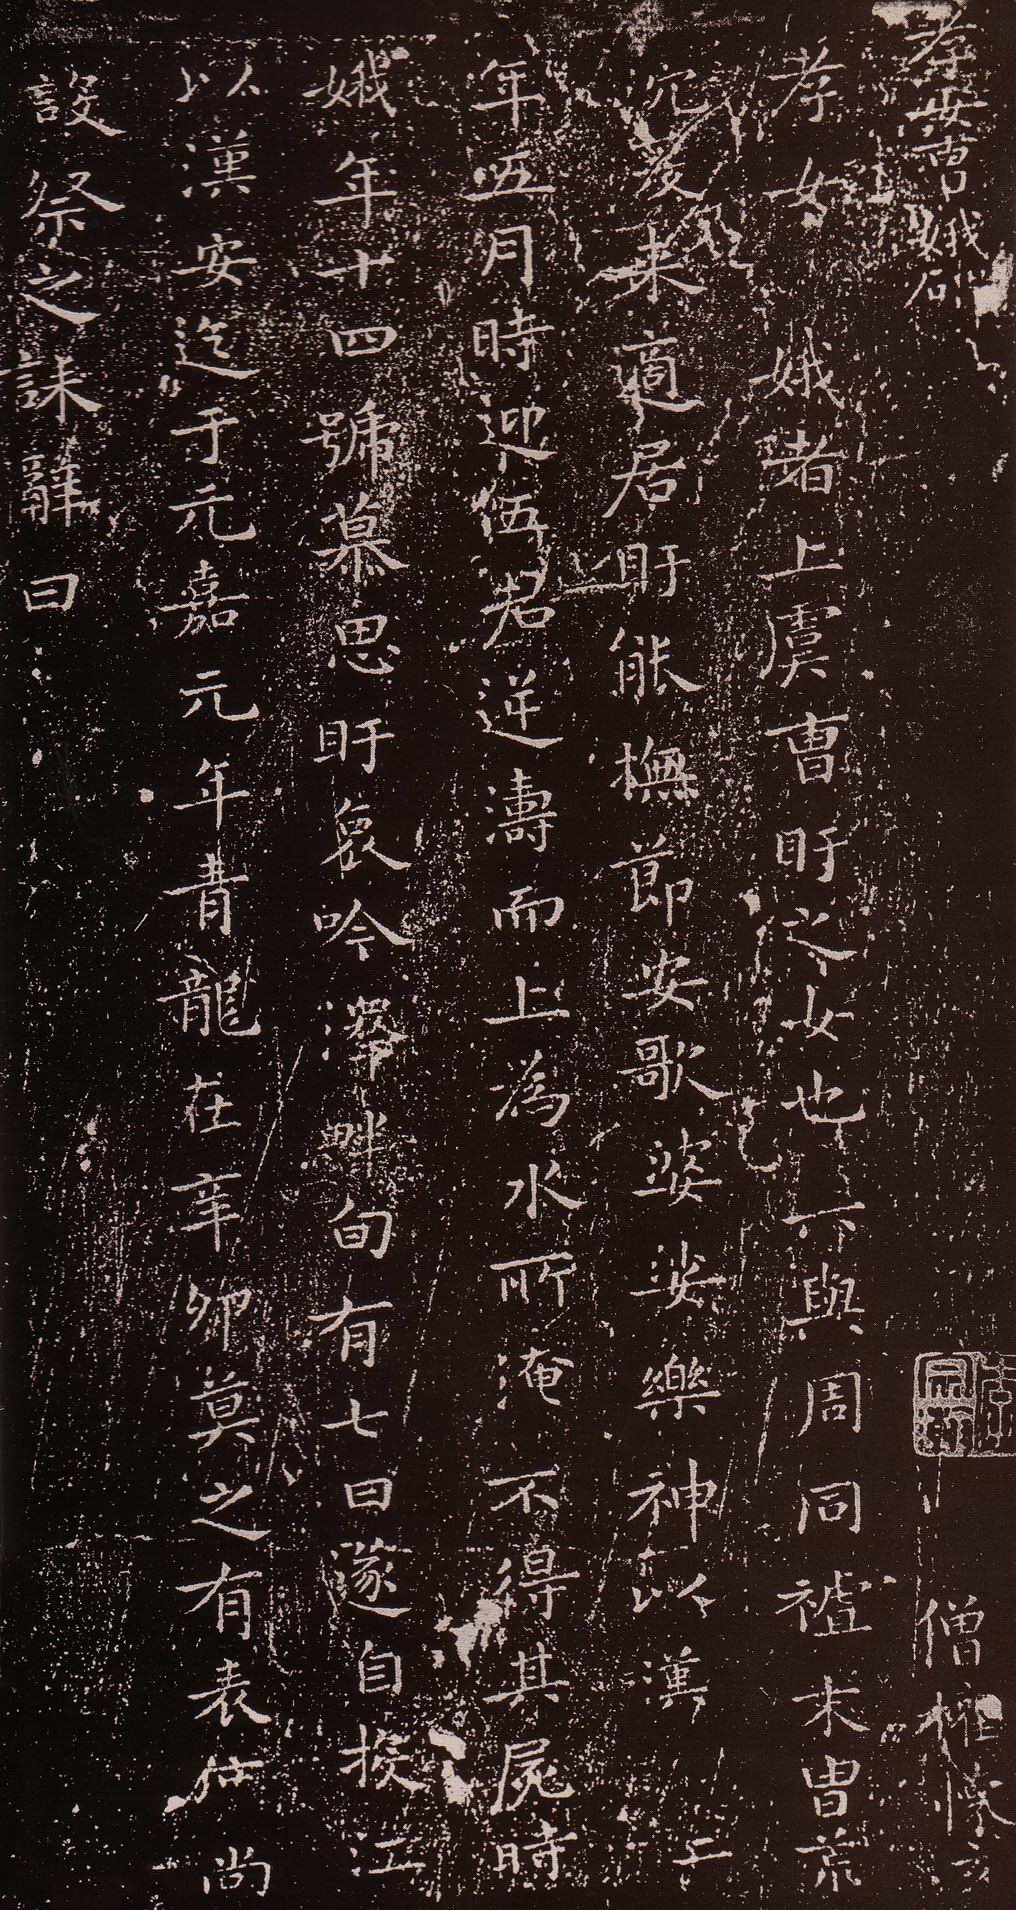 孝女曹娥碑
僧權 懷充
孝女娥者上虞曹盱之女也其先與周同祖末胄荒
沉爰来適居盱能撫節安歌婆娑樂神以漢安二
年五月時迎伍君逆濤而上為水所淹不得其屍時
娥年十四號慕思盱哀吟澤畔旬有七日遂自投江
死以漢安迄于元嘉元年青龍在辛卯莫之有表度尚
設祭之誄辭曰